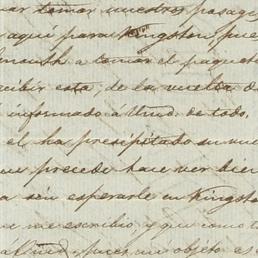 tomar nuestro pasage
aqui para Kingston, pue
a tomar el paquete
recibir esta, de la vuelta de
informado á Umd. de todo,
el ha presipitado su
precede hace ver bien
esperarle en Kingston
me escribio, y que como
pues, mi objeto es